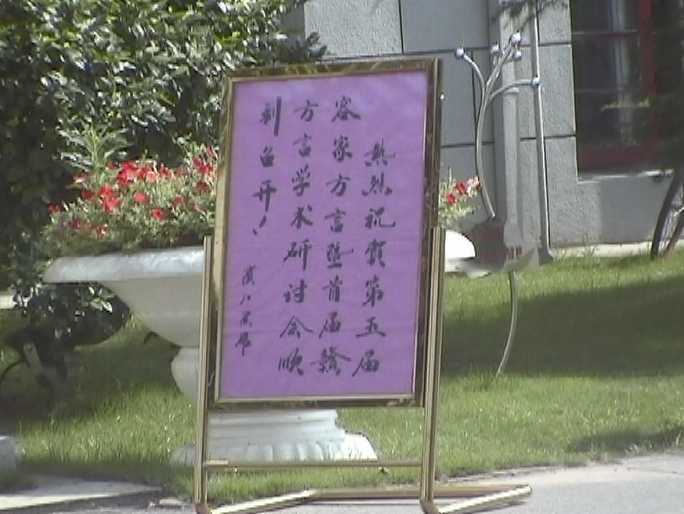 热烈祝贺第五届
客家方言暨首届赣
方言学术研讨会顺
利召开！